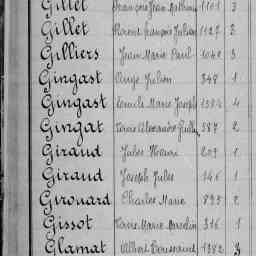 Gillet François Jean 1101 3
Gillet Florent François Julien 1127 3
Gilliers Jean Marie Paul 1042 3
Gingast Ange Julien 348 1
Gingast Marie Joseph 1384 4
Gingat Pierre Alexandre 387 2
Giraud Jules Henri 209 1
Giraud Joseph Jules 146 1
Girouard Charles Marie 895 2
Gissot Pierre Marie 316 1
Glamat Albert 1382 3